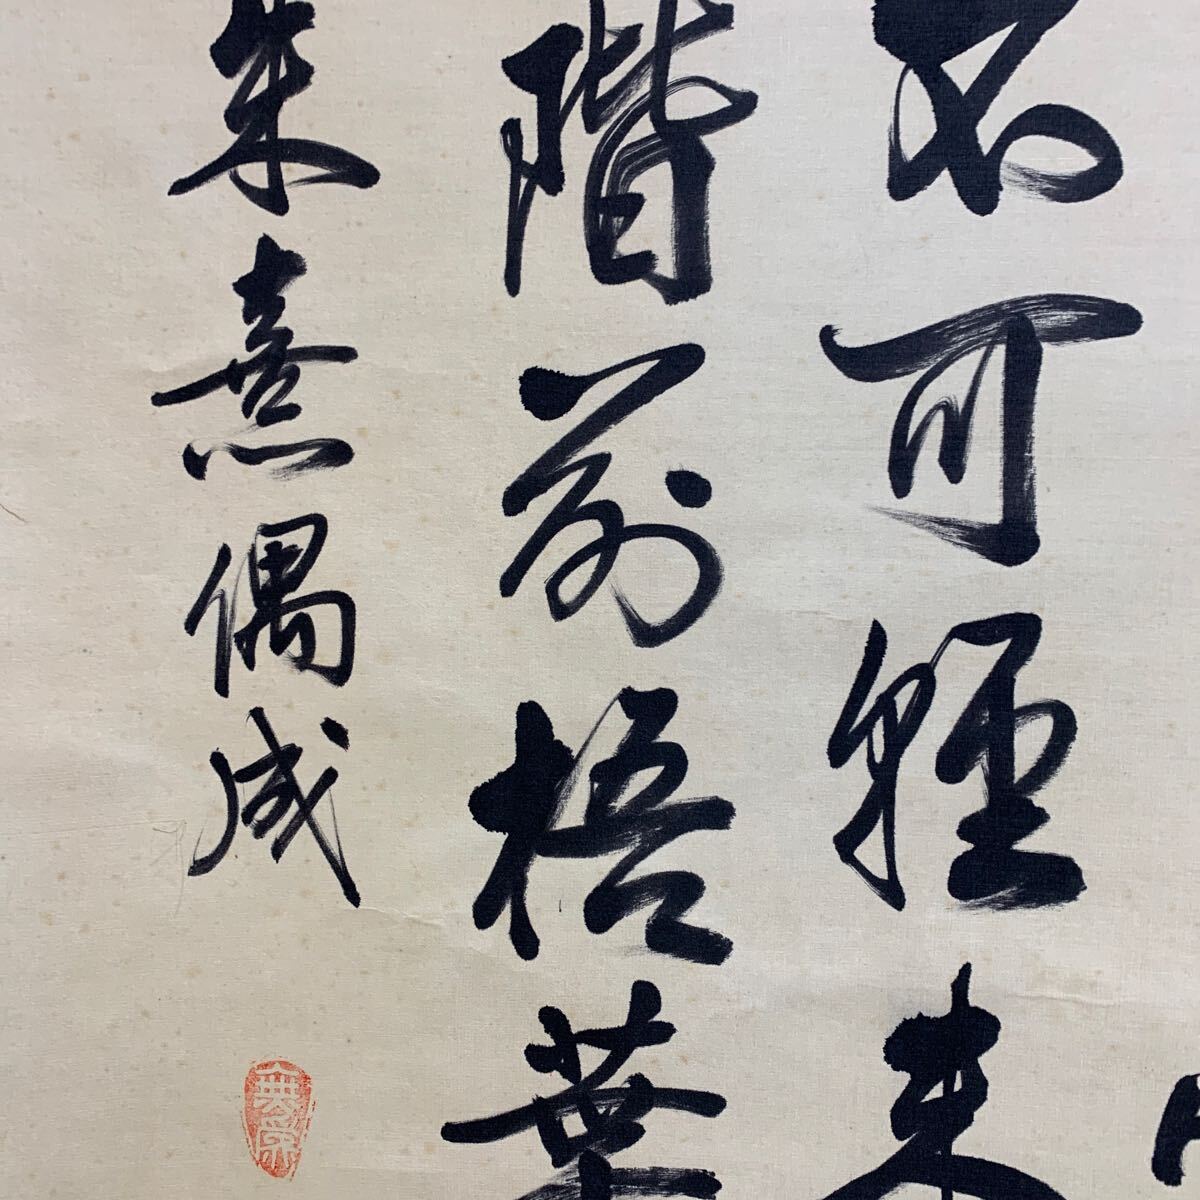 不可軽未
階前梧葉
朱熹偶成